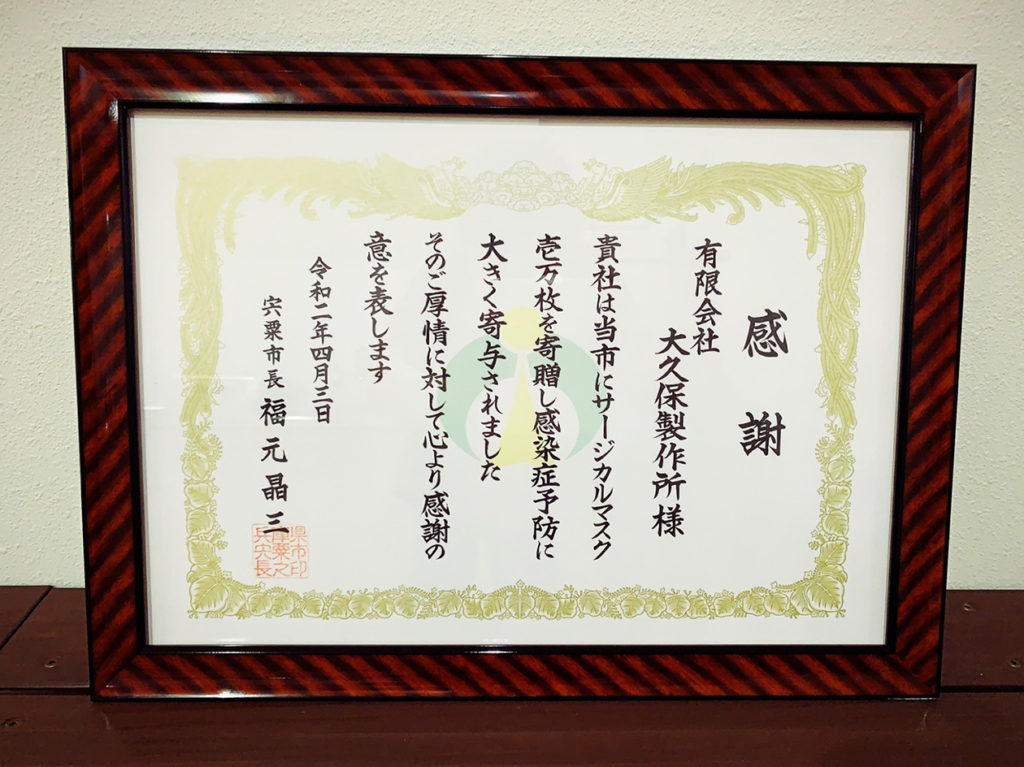 感謝
有限会社
大久保製作所様
貴社は当市にサージカルマスク
壱万枚を寄贈し感染症予防に
大きく寄与されました
そのご厚情に対して心より感謝の
意を表します
令和二年四月三日
宍粟市長 福元晶三
県市印
庫粟之
兵宍長